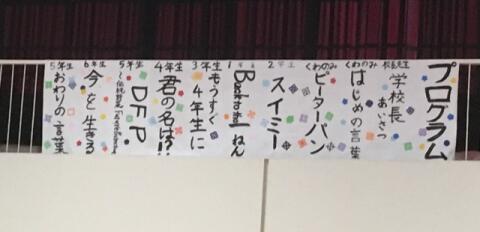 プログラム
校長先生
学校長 あいさつ
くわのみ
はじめの言葉
くわのみ
ピーターパン
2年生
スイミー
1年生
ねん
3年生
もうすぐ4年生に
4年生
君の名は!?
5年生
DFP
6年生
今を生きる
5年生
おわりの言葉